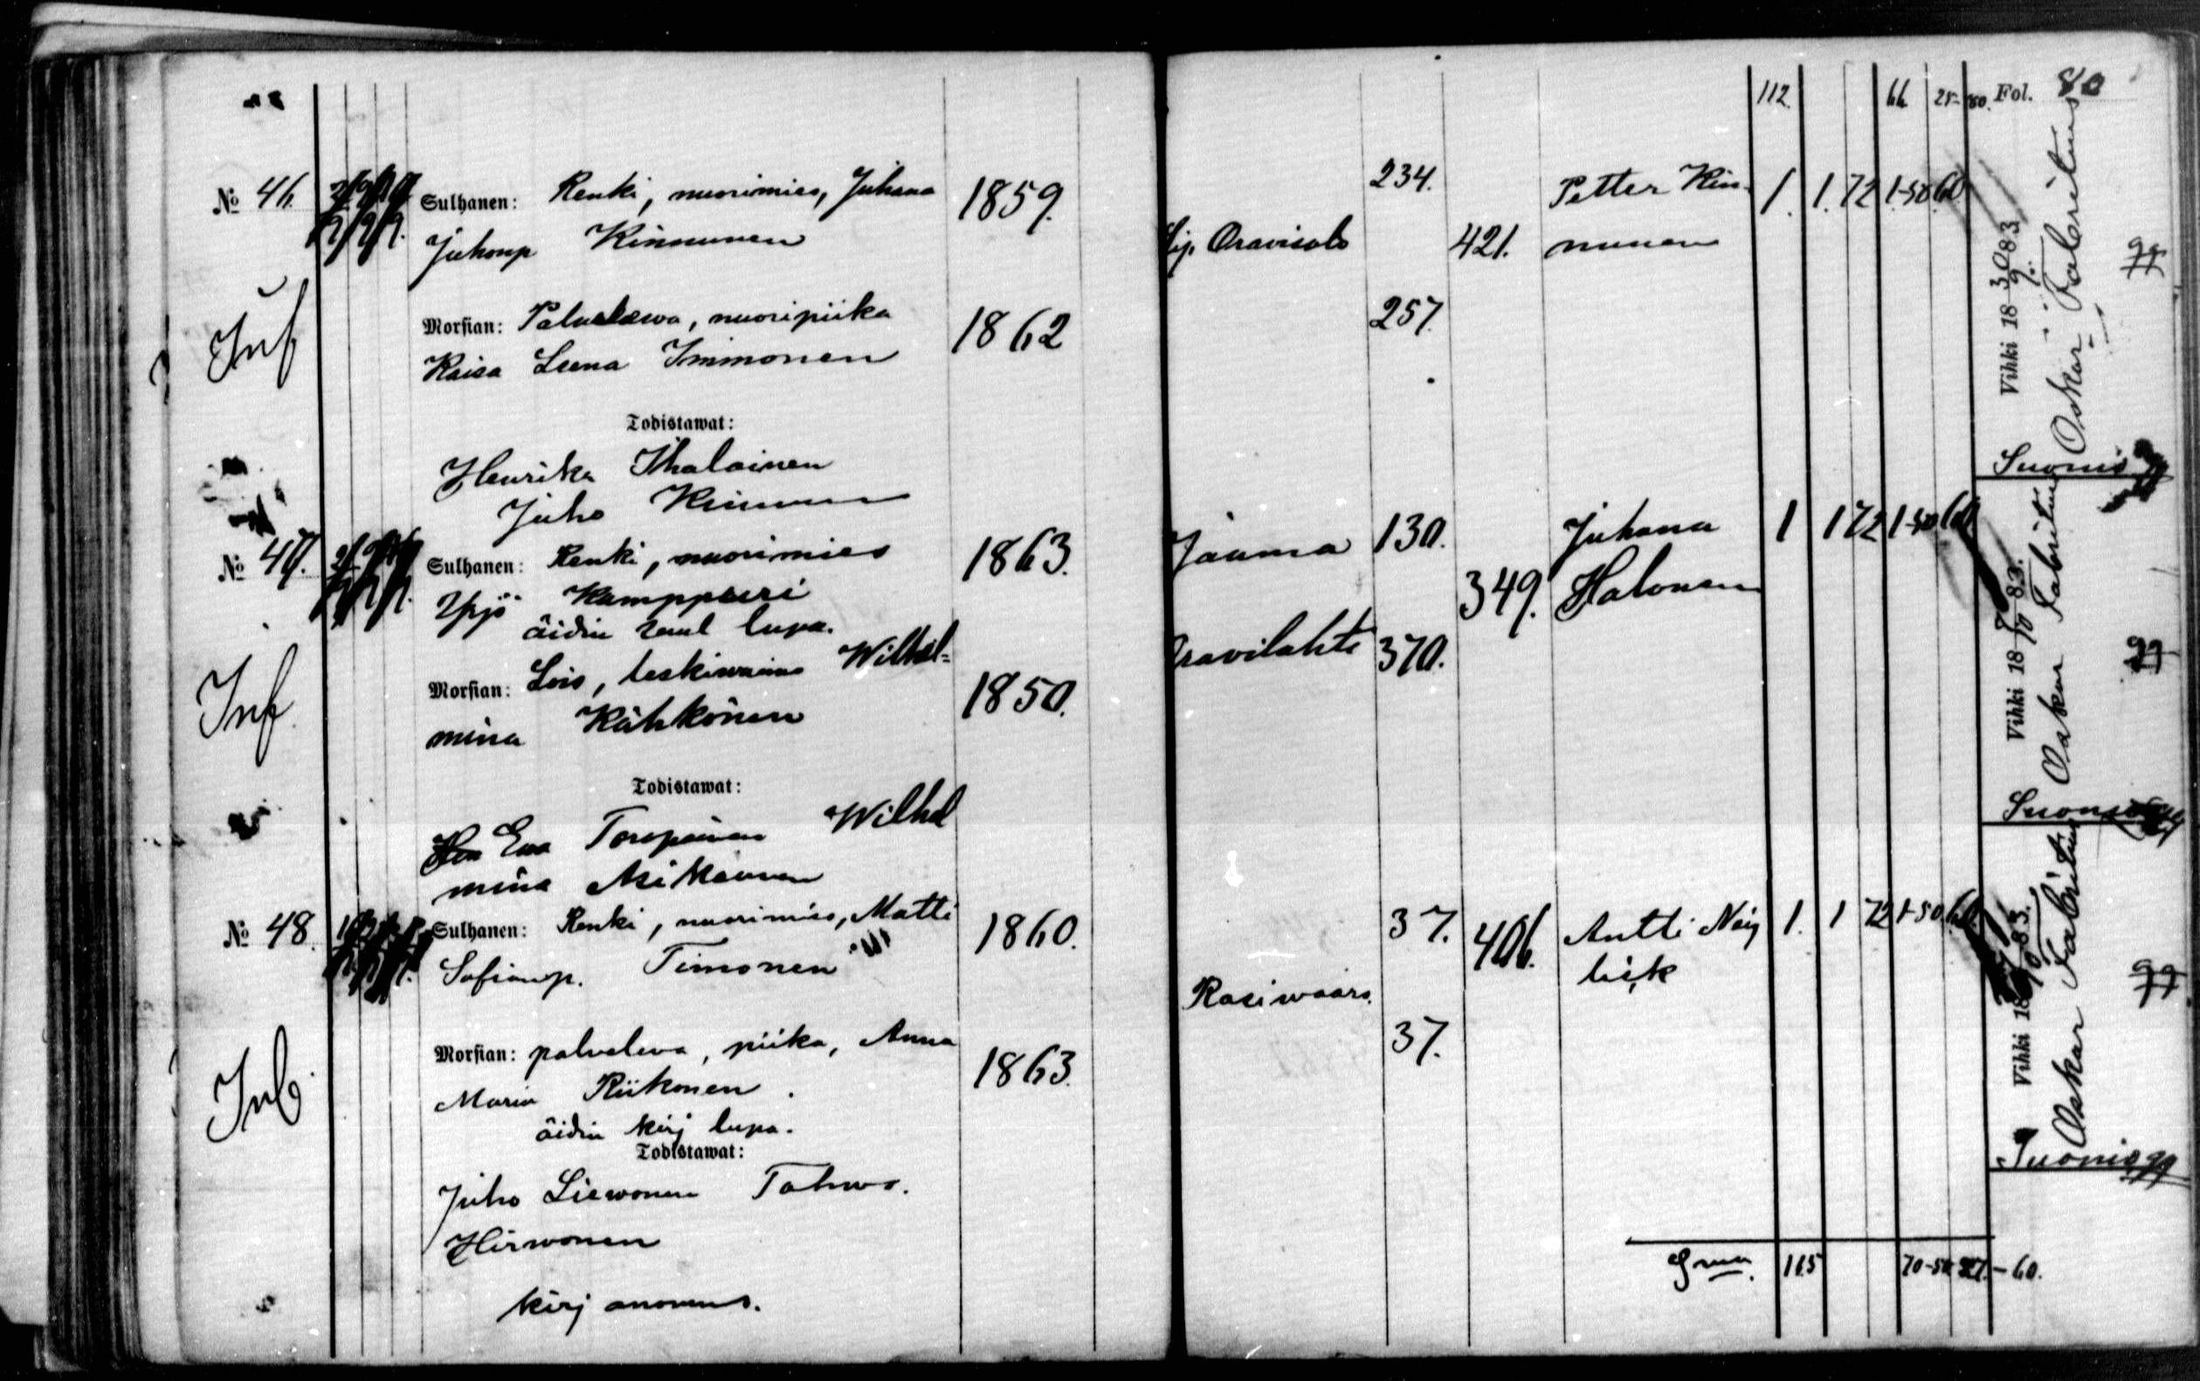 112. 66 25-80. Fol. 80
№ 46. Sulhanen: Renki, nuorimies, Juhana 1859. 234. Petter Kin- 1. 1. 72 1-50 60
Juhonp Kinnunen Lip. Oravisalo 421. nunen
Inf
Morsian: Palveleva, nuoripiika 1862 257.
Kaisa Leena Immonen
Vihki 18 83 Oskar Fabritius
Todistawat:
Henrika Ihalainen
Juho Kinnunen
Suomis
№ 47. Sulhanen: Renki, nuorimies 1863. Jaama 130. Juhana 1 1 72 1-50 60
Yrjö Kamppuri 349. Halonen
äidin suul lupa.
Inf
Morsian: Lois, leskivaimo Wilhel= 1850. Oravilahti 370.
mina Kähkönen
Vihki 18 83. Oskar Fabritius
Todistawat:
Eva Toropainen Wilhel
mina Asikainen
Suomis
№ 48. Sulhanen: Renki, nuorimies, Matti 1860. 37. 406. Antti Näy 1. 1 72 1-50 60
Sofianp. Timonen Rasiwaara. 37.
Inf.
Morsian: palveleva, piika, Anna 1863.
Maria Riikonen.
äidin kirj lupa.
Vihki 18 83. Oskar Fabritius
Todistawat:
Juho Liewonen Tahwo.
Hirwonen
Suomis
kirj anomus.
Sma. 115 70-50 27-60.